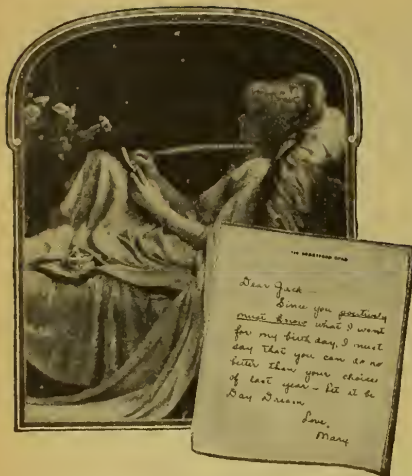 Dear Jack —
Since you positively
must know what I want
for my birthday, I must
say that you can do no
better than your choice
of last year — let it be
Day Dream
Love,
Mary